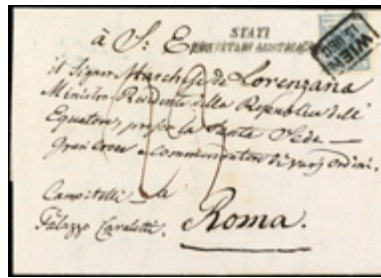 STATI
à S: E
WIEN
il Signor Marchese de Lorenzana
Ministro Residente della Republica dell'
Equatore, presso la Santa Sede
Gran Croce e Commendatore di varj Ordini.
Campitelli
Palazzo Cavaletti.
Roma.